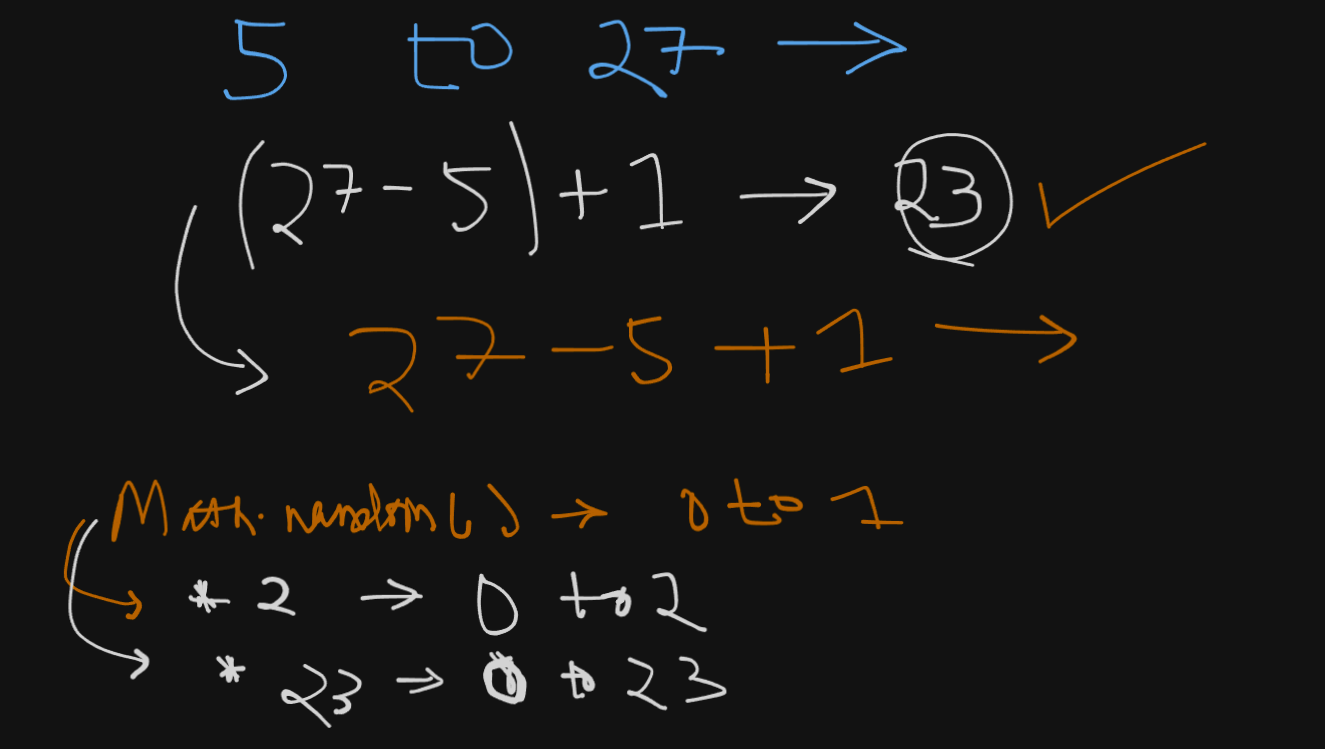 5 to 27 →
(27 - 5) + 1 → 23 ✓
27 - 5 + 1 →
Math.random() → 0 to 1
* 2 → 0 to 2
* 23 → 0 to 23